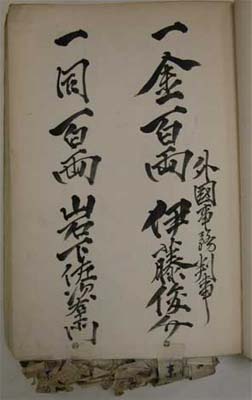 外國事務判事
一金百両 伊藤俊介
一同百両 岩下佐次右衛門